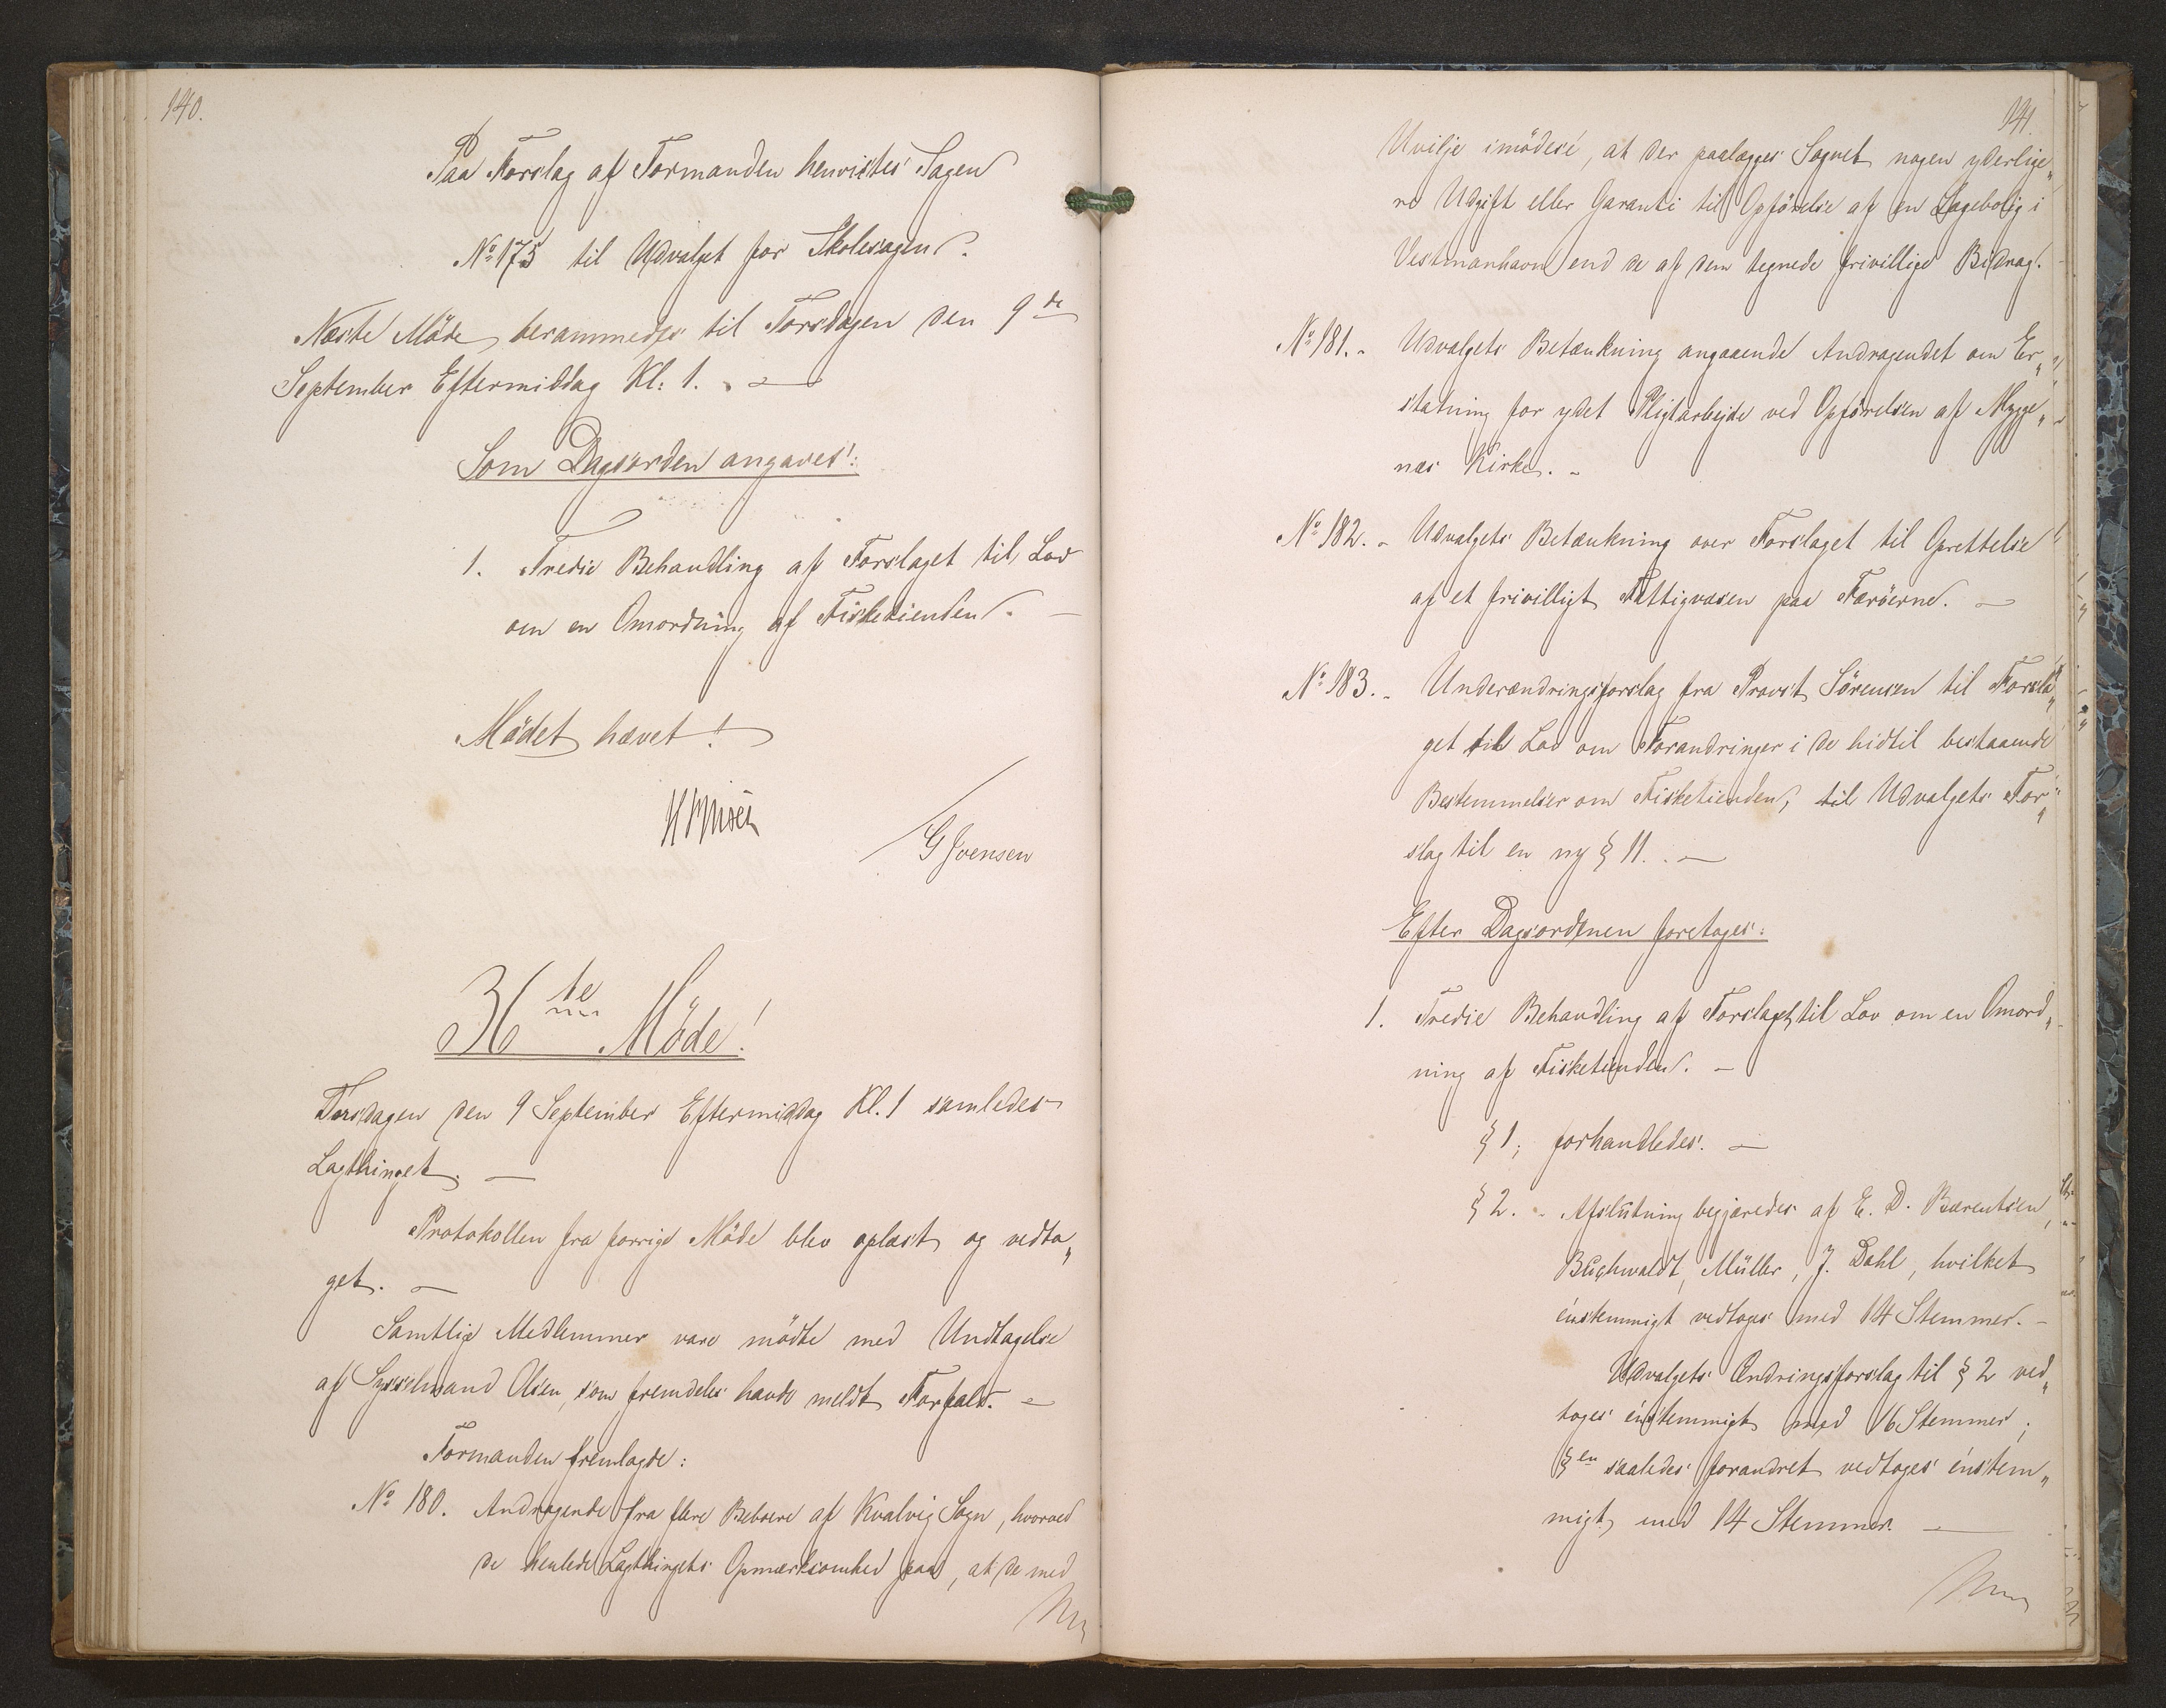 140.
Paa Forslag af Formanden henvistes Sagen
No 175 til Udvalget for Skolesagen.
Næste Möde berammedes til Torsdagen den 9de
September Eftermiddag Kl: 1. —
Som Dagsorden angaves:
1. Tredie Behandling af Forslaget til Lov
om en Omordning af Fisketienden. —
Mödet hævet!
G Joensen
36te Möde!
Torsdagen den 9 September Eftermiddag Kl. 1 samledes
Lagthinget. —
Protokollen fra forrige Möde blev oplæst og vedta„
get. —
Samtlige Medlemmer vare mödte med Undtagelse
af Sysselmand Olsen, som fremdeles havde meldt Forfald. —
Formanden fremlagde:
No 180. Andragende fra flere Beboere af Kvalvig Sogn, hvorved
de henlede Lagthingets Opmærksomhed paa, at de med
141.
Uvilje imödese, at der paalægges Sognet nogen yderlige„
re Udgift eller Garanti til Opförelse af en Lægebolig i
Vestmanhavn end de af dem tegnede frivillige Bidrag.
No 181. - Udvalgets Betænkning angaaende Andragendet om Er„
statning for ydet Pligtarbejde ved Opförelsen af Mygge„
næs Kirke. -
No 182. - Udvalgets Betænkning over Forslaget til Oprettelse
af et frivilligt Fattigvæsen paa Færöerne. —
No 183. - Underændringsforslag fra Provst Sörensen til Forsla„
get til Lov om Forandringer i de hidtil bestaaende
Bestemmelser om Fisketienden, til Udvalgets For„
slag til en ny § 11. . —
Efter Dagsordenen foretoges:
1. Tredie Behandling af Forslaget til Lov om en Omord„
ning af Fisketienden. —
§ 1; forhandledes. —
§ 2. - Afslutning begjæredes af E. D. Bærentsen,
Buchwaldt, Müller, J. Dahl, hvilket
énstemmigt vedtoges med 14 Stemmer. -
Udvalgets Ændringsforslag til § 2 ved„
toges énstemmigt med 16 Stemmer;
§en saaledes forandret vedtoges énstem„
migt med 14 Stemmer. —